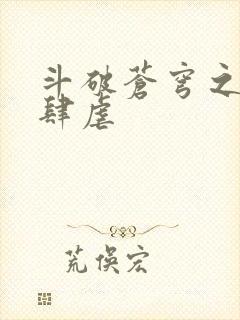 斗破苍穹之
肆虐
荒俣宏